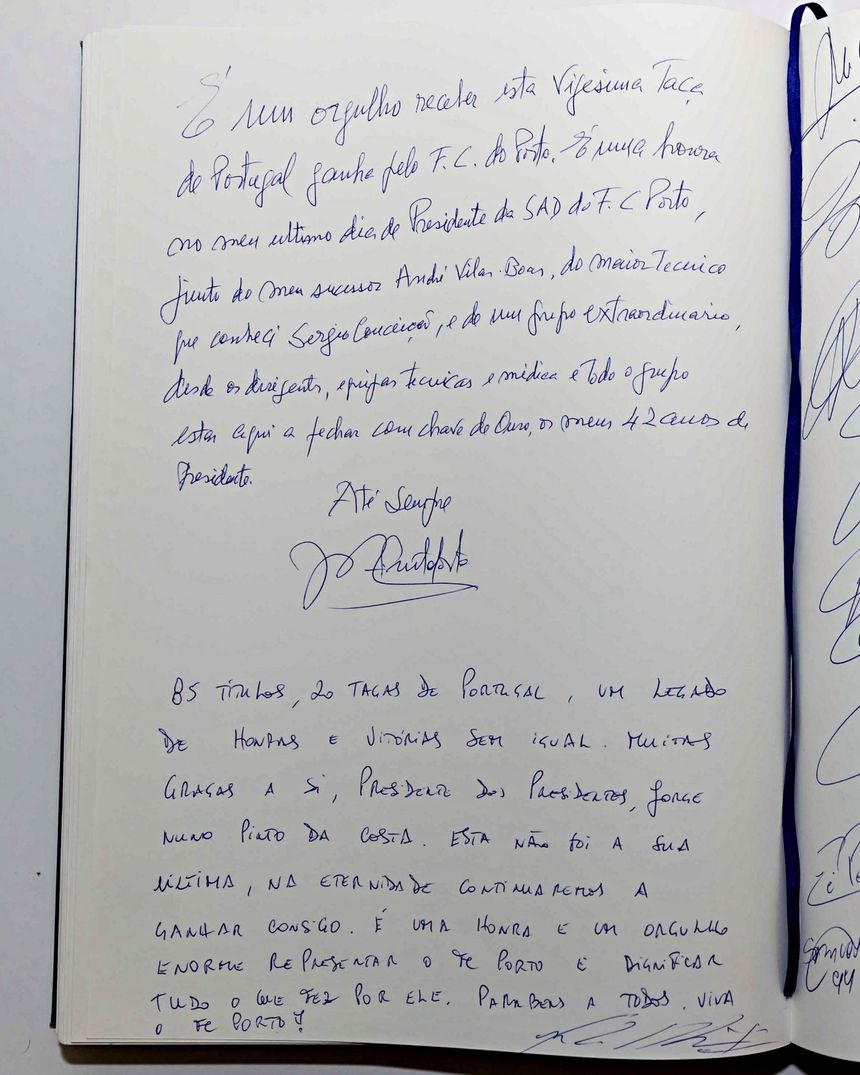 É um orgulho receber esta Vigesima Taça
de Portugal ganha pelo F. C. do Porto. É uma honra
no meu ultimo dia de Presidente da SAD do F. C Porto,
junto do meu sucessor André Vilas-Boas, do maior Tecnico
que conheci Sergio Conceição, e de um grupo extraordinario,
desde os dirigents, equipas tecnicas e médica e todo o grupo
estar aqui a fechar com chave de Ouro, os meus 42 anos de
Presidente.
Até Sempre
85 TÍTULOS, 20 TAÇAS DE PORTUGAL, UM LEGADO
DE HONRAS E VITÓRIAS SEM IGUAL. MUITAS
GRAÇAS A SI, PRESIDENTE DOS PRESIDENTES, JORGE
NUNO PINTO DA COSTA. ESTA NÃO FOI A SUA
ÚLTIMA, NA ETERNIDADE CONTINUAREMOS A
GANHAR CONSIGO. É UMA HONRA E UM ORGULHO
ENORME REPRESENTAR O FC PORTO E DIGNIFICAR
TUDO O QUE FEZ POR ELE. PARABENS A TODOS. VIVA
O FC PORTO!